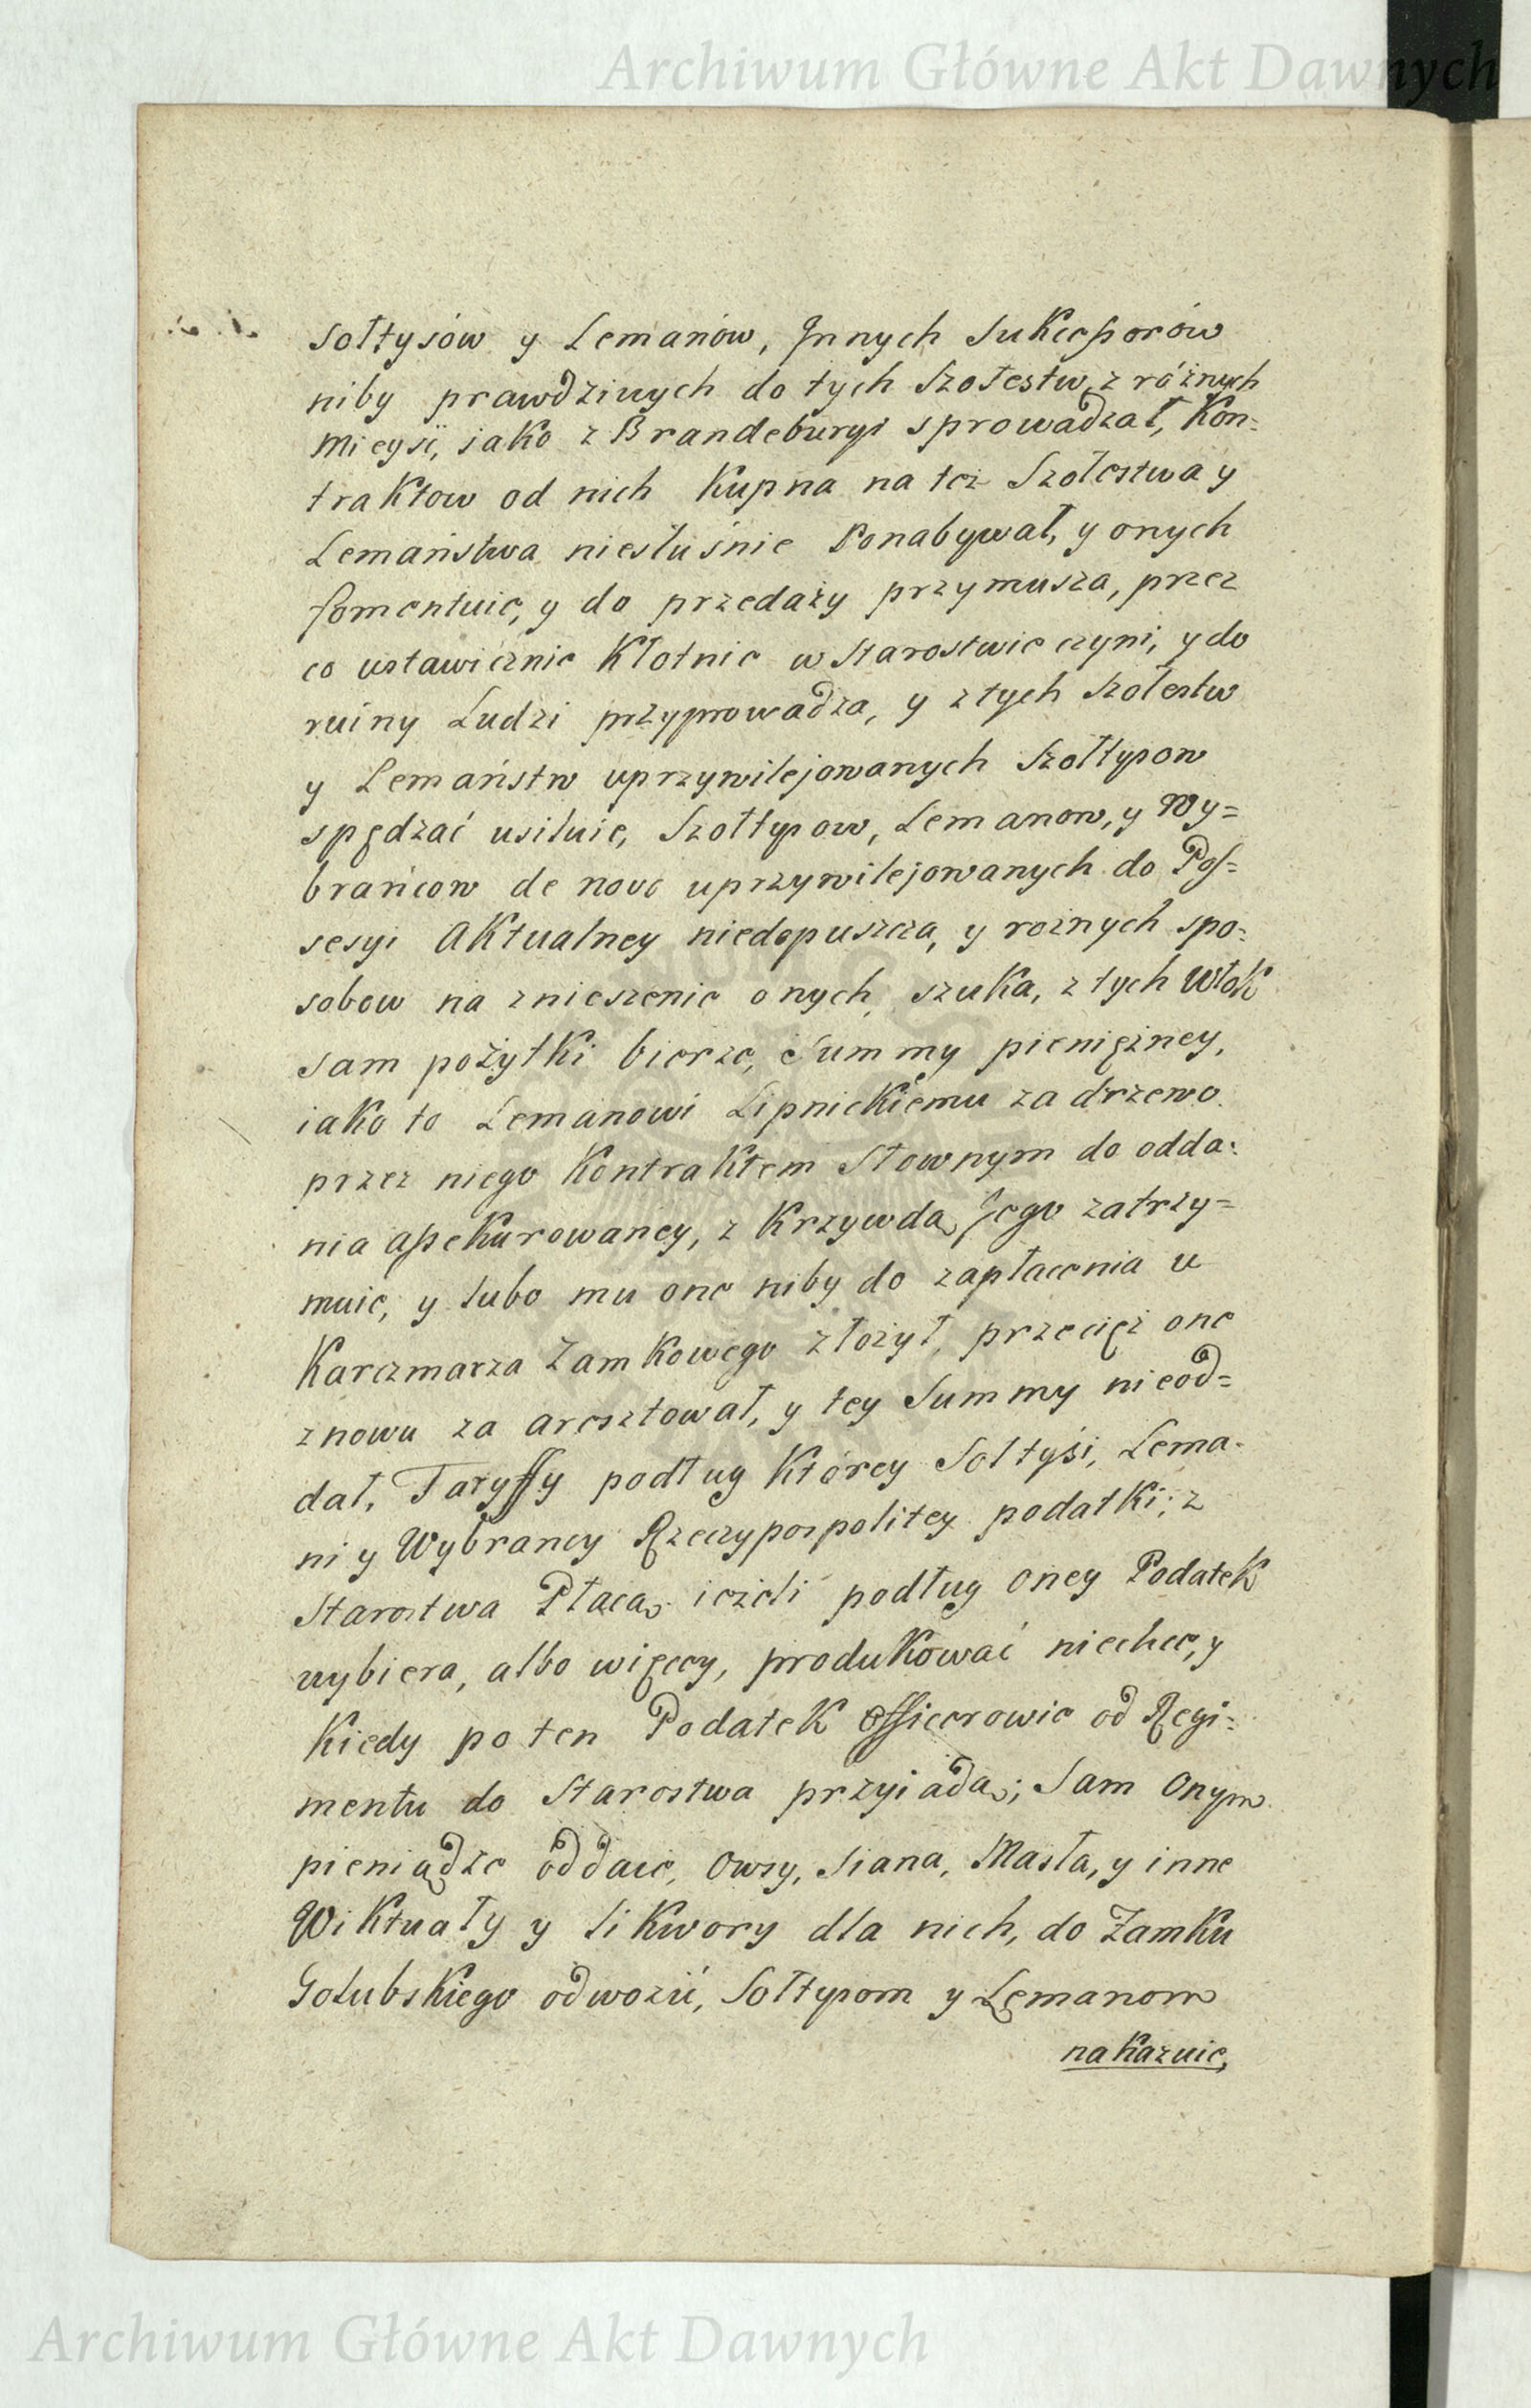 Archiwum Główne Akt Dawnych
Sołtysów y Lemanów, Innych Sukcessorów
niby prawdziwych do tych Szołestw z różnych
Mieysć, jako z Brandeburgi sprowadzał, Kon-
traktow od nich Kupna na też Szołestwa y
Lemaństwa niesłuśnie Ponabywał, y onych
fomentuie, y do przedaży przymusza, przez
co ustawicznie Kłotnie w Starostwie czyni, y do
ruiny Ludzi przyprowadza, y z tych Szołestw
y Lemaństw uprzywilejowanych Szołtysow
spędzać usiłuie, Szołtysow, Lemanow, y Wy=
brańcow de novo uprzywilejowanych do Pos=
sesyi Aktualney niedopuszcza, y rożnych spo-
sobow na znieszenie onych szuka, z tych Włok
sam pożytki bierze, Summy pieniężney,
iako to Lemanowi Lipnickiemu za drzewo
przez niego Kontraktem Słownym do odda-
nia assekurowaney, z Krzywdą Jego zatrzy=
muie, y lubo mu one niby do zapłacenia u
Karczmarza Zamkowego złożył, przecięż one
znowu za aresztował, y tey Summy nieod=
dał, Taryffy podług Którey Sołtysi, Lema-
ni y Wybrancy Rzeczypospolitey podatki z
Starostwa Płacą, ieżeli podług oney Podatek
wybiera, albo więcey, produkować niechce, y
Kiedy po ten Podatek Officerowie od Regi-
mentu do Starostwa przyiadą; Sam Onym
pieniądze oddaie, Owsy, Siana, Masła, y inne
Wiktuały y likwory dla nich, do Zamku
Golubskiego odwozić, Sołtysom y Lemanom
nakazuie,
Archiwum Główne Akt Dawnych